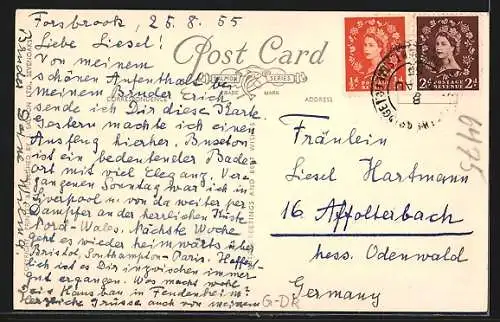 Forsbrook, 25.8.55
Liebe Liesel!
Von meinem
schönen Aufenthalt bei
meinem Bruder Erich
sende ich Dir diese Karte
Gestern machte ich einen
Ausflug hierher. Buxton
ist ein bedeutender Bade
ort mit viel Eleganz. Ver
gangenen Sonntag war ich in
Liverpool u. von da weiter per
Dampfer an der herrlichen Küste
Nord-Wales. Nächste Woche
geht es wieder heimwärts über
Bristol, Southampton-Paris. Hoffent
lich ist es Dir inzwischen immer
gut ergangen. Was macht wohl
Dein Hausbau in Feudenheim?
Herzliche Grüsse auch von meinem
Bruder Deine
Post Card
SALMON SERIES
TRADE MARK
CORRESPONDENCE
ADDRESS
POSTAGE REVENUE
½d ½d
POSTAGE REVENUE
2d 2d
Fräulein
Liesel Hartmann
16 Affolterbach
hess. Odenwald
Germany
6475
G-DR